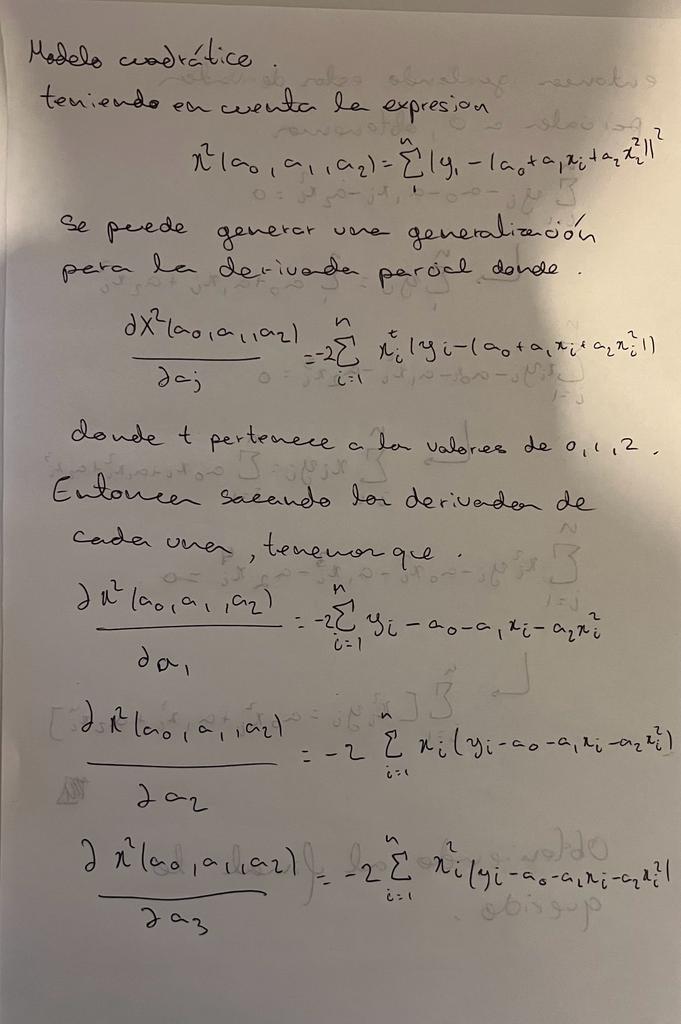 Modelo cuadrático.
teniendo en cuenta la expresion
x²(a₀, a₁, a₂) = Σⁿᵢ (yᵢ - (a₀ + a₁xᵢ + a₂x²₂))²
Se puede generar una generalización
para la derivada parcial donde.
∂X²(a₀, a₁, a₂)/∂aⱼ = -2 Σⁿᵢ₌₁ xᵢᵗ (yᵢ - (a₀ + a₁xᵢ + a₂xᵢ²))
donde t pertenece a los valores de 0, 1, 2.
Entonces sacando las derivadas de
cada una, tenemos que.
∂x²(a₀, a₁, a₂)/∂a₁ = -2 Σⁿᵢ₌₁ yᵢ - a₀ - a₁xᵢ - a₂xᵢ²
∂x²(a₀, a₁, a₂)/∂a₂ = -2 Σⁿᵢ₌₁ xᵢ(yᵢ - a₀ - a₁xᵢ - a₂xᵢ²)
∂x²(a₀, a₁, a₂)/∂a₃ = -2 Σⁿᵢ₌₁ xᵢ²(yᵢ - a₀ - a₁xᵢ - a₂xᵢ²)